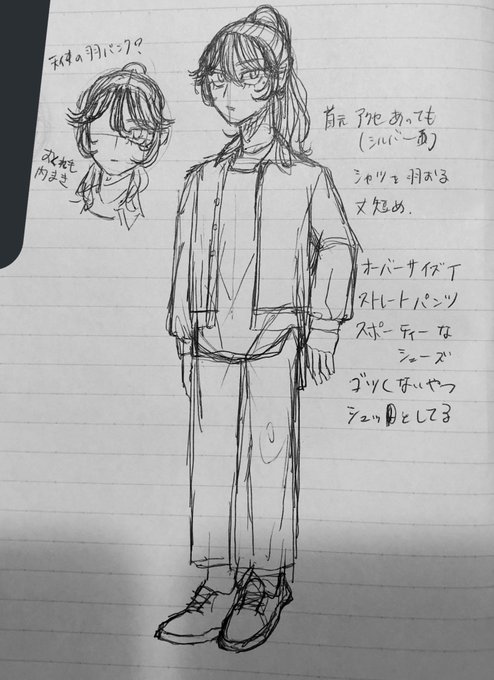 天使の羽バング?
おくれ毛
内まき
首元 アクセあっても
(シルバー系)
シャツを羽おる
丈短め.
オーバーサイズT
ストレートパンツ
スポーティーな
シューズ
ゴツくないやつ
シュッとしてる